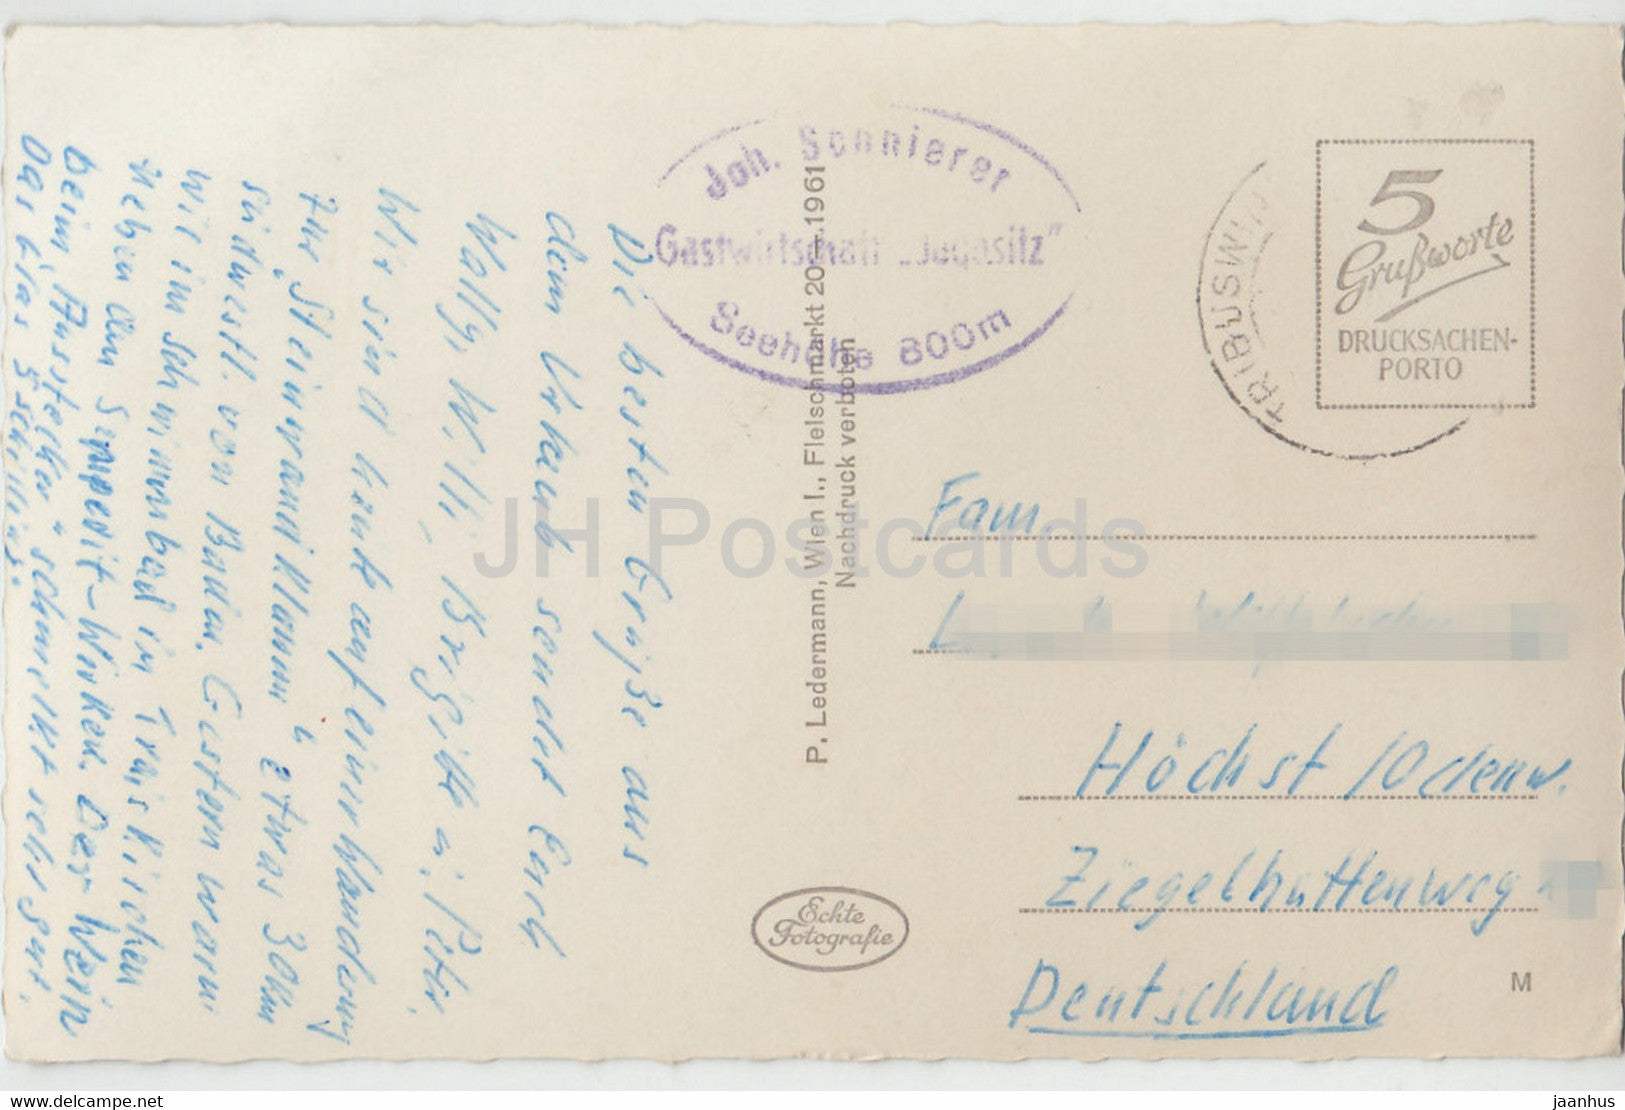 Die besten Grüße aus
dem Urlaub sendet Euch
Wally, Willi, Brigitte u. Peter.
Wir sind heute auf einer Wanderung
zur „Steinwandklamm“ etwas 30km
südwestl. von Baden. Gestern waren
wir im schwimmbad in Traiskirchen
neben den Semperit-Werken. Der Wein
beim „Aussteckn“ schmeckt sehr gut.
Das Glas 5 Schilling.
Joh. Schnierer
Gastwirtschaft „Jagasitz“
Seehöhe 800m
P. Ledermann, Wien I., Fleischmarkt 20 — 1961
Nachdruck verboten
Echte
Fotografie
TRIBUSWIN
5
Grußworte
DRUCKSACHEN-
PORTO
Fam.
Höchst /Odenw.
Ziegelhüttenweg
Deutschland
M
JH Postcards
delcampe.net
jaanhus